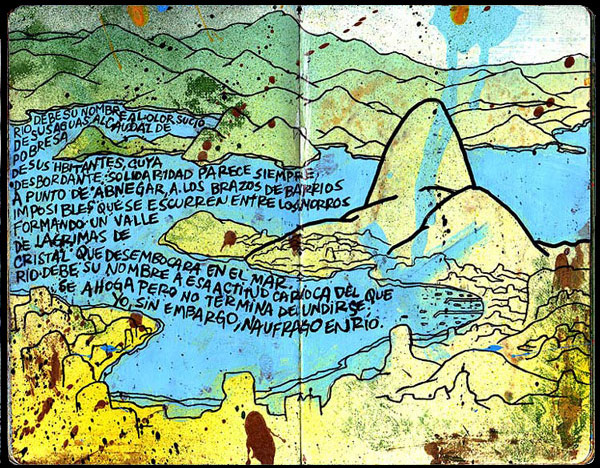 RIO DEBE SU NOMBRE AL OLOR SUCIO
DE SUS AGUAS, AL CAUDAL DE
POBRESA
DE SUS HBITANTES, CUYA
DESBORDANTE SOLIDARIDAD PARECE SIEMPRE
A PUNTO DE ABNEGAR, A LOS BRAZOS DE BARRIOS
IMPOSIBLES QUE SE ESCURREN ENTRE LOS MORROS
FORMANDO UN VALLE
DE LÁGRIMAS DE
CRISTAL QUE DESEMBOCARA EN EL MAR.
RIO DEBE SU NOMBRE A ESA ACTITUD CARIOCA DEL QUE
SE AHOGA PERO NO TERMINA DE UNDIRSE,
YO, SIN EMBARGO, NAUFRAGO EN RIO.